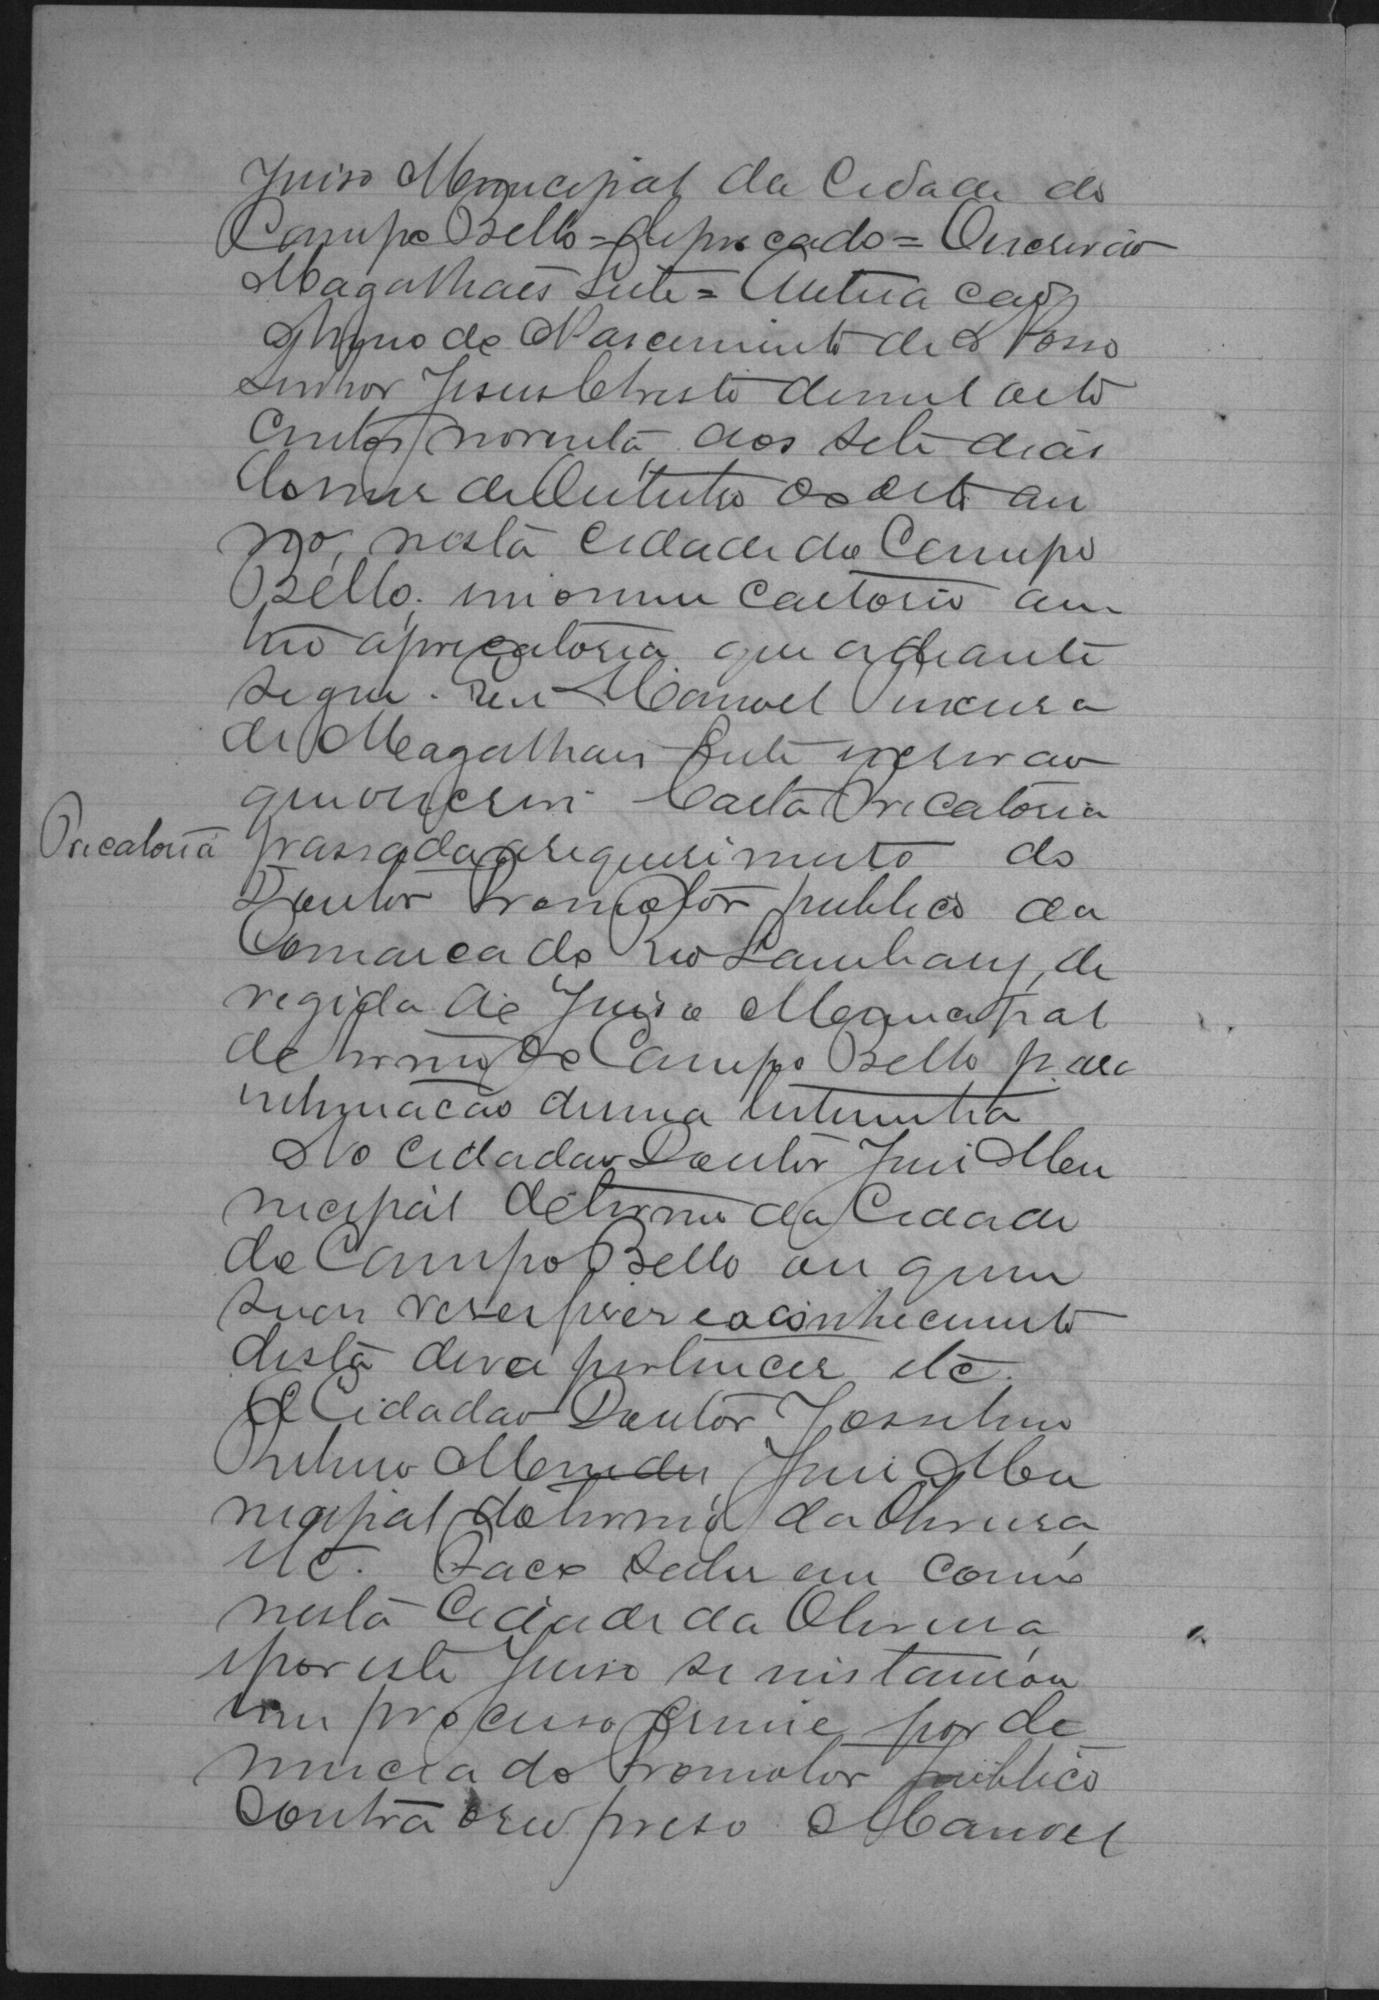 Juiso Municipal da Cidade do
Campo Bello = deprecado = O escrivão
Magalhães Leite = Autuação
Anno do Nascimento de Nosso
Senhor Jesus Christo de mil oito
centos noventa, aos sete dias
do mes de Outubro do dito an
no, nesta Cidade do Campo
Bello, em o meu Cartorio au
tuo a precatoria que adeante
segue. Eu Manoel
de Magalhães Leite escrivão
que o escrevi Carta Precatoria
Precatoria
passada a requerimento do
Doutor Promotor publico da
Comarca do Rio Lambary, de
regida ao Juiso Municipal
do termo do Campo Bello para
intimação de uma testemunha
Ao Cidadão Doutor Juis Mu
nicipal do termo da Cidade
do Campo Bello ou quem
suas veses fiser e o conhecimento
desta deva pertencer etc.
O Cidadão Doutor
Mendes, Juis Mu
nicipal do termo da Oliveira,
etc. Faço saber em como
nesta Cidade da Oliveira,
e por este Juiso se instaurou
um processo crime por de
nuncia do Promotor publico
contra o reu preso Manoel